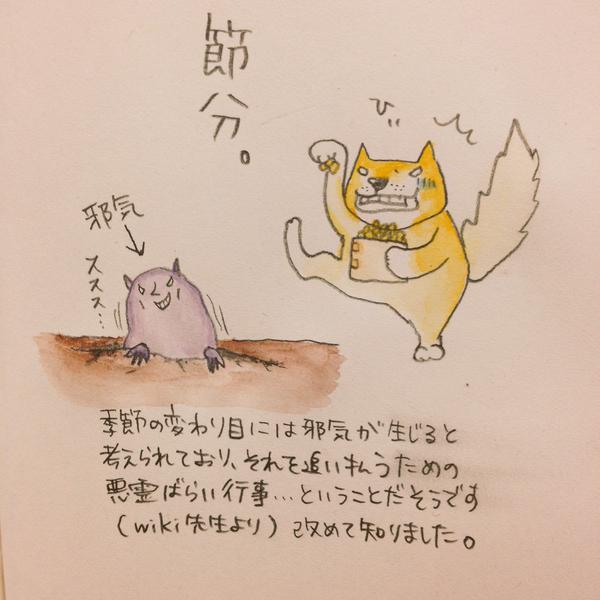 節分。
びび
邪気
ススス…
季節の変わり目には邪気が生じると
考えられており、それを追い払うための
悪霊ばらい行事…ということだそうです
(wiki先生より)改めて知りました。